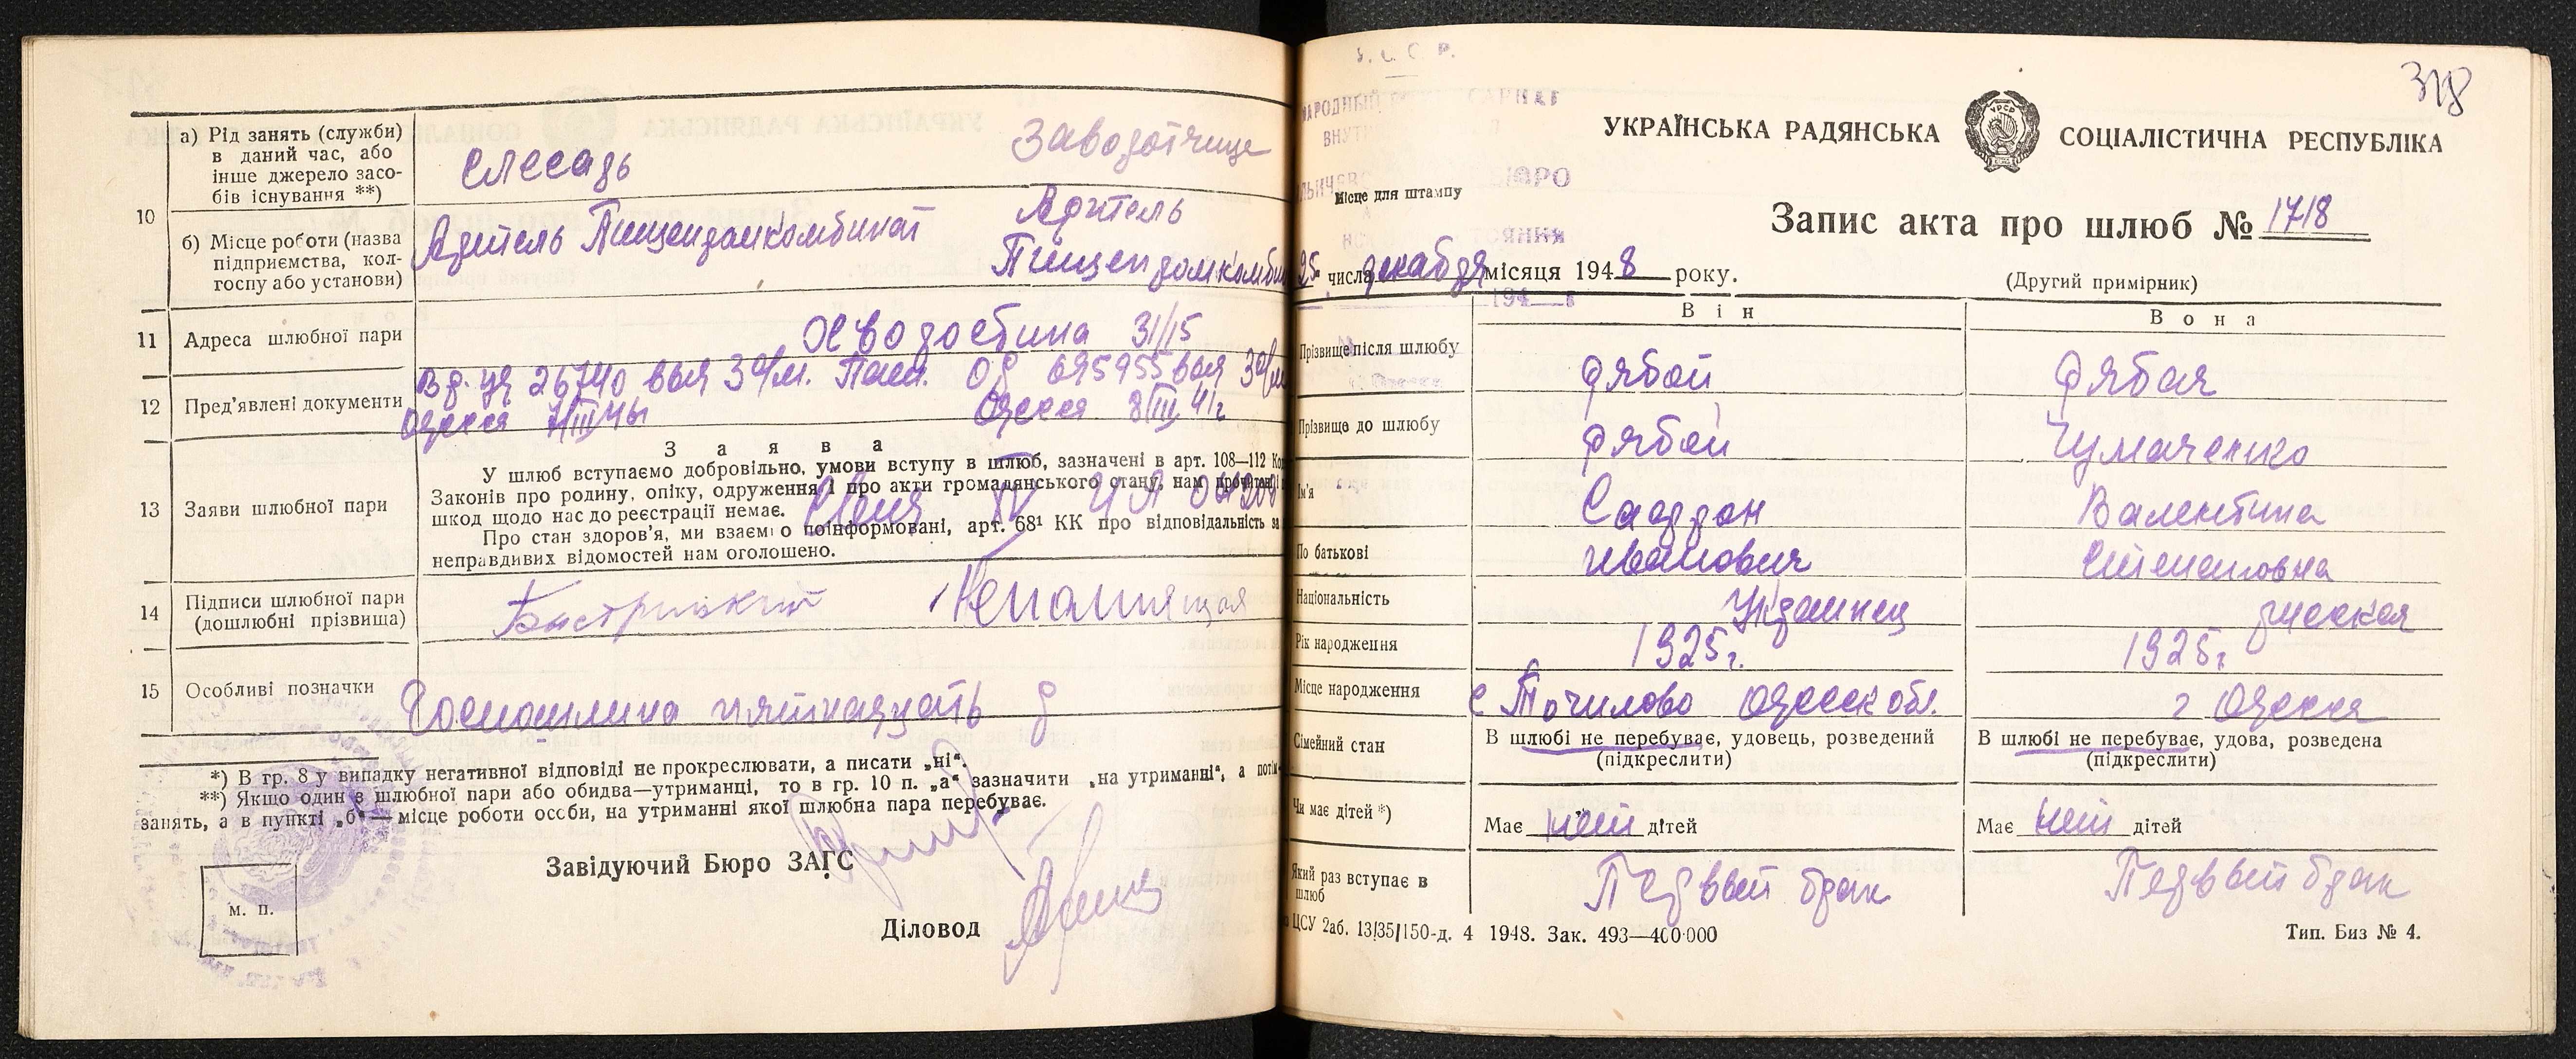 10
а) Рід занять (служби) в даний час, або інше джерело засобів існування **)
слесарь
б) Місце роботи (назва підприємства, колгоспу або установи)
Артель Пищепромкомбинат
Артель
11
Адреса шлюбної пари
31/15
12
Пред'явлені документи
Одесса
Одесса 8/III 41г
13
Заяви шлюбної пари
Заява
У шлюб вступаємо добровільно, умови вступу в шлюб, зазначені в арт. 108—112
Законів про родину, опіку, одруження і про акти громадянського стану, нам
шкод щодо нас до реєстрації немає.
Про стан здоров'я, ми взаємно поінформовані, арт. 68¹ КК про відповідальність за
неправдивих відомостей нам оголошено.
14
Підписи шлюбної пари
(дошлюбні прізвища)
15
Особливі позначки
Госпошлина пятнадцать р
*) В гр. 8 у випадку негативної відповіді не прокреслювати, а писати „ні“.
**) Якщо один з шлюбної пари або обидва—утриманці, то в гр. 10 п. „а“ зазначити „на утриманні“, а
занять, а в пункті „б“—місце роботи особи, на утриманні якої шлюбна пара перебуває.
Завідуючий Бюро ЗАГС
м. п.
Діловод
318
УКРАЇНСЬКА РАДЯНСЬКА СОЦІАЛІСТИЧНА РЕСПУБЛІКА
УРСР
Місце для штампу
Запис акта про шлюб № 1718
25 числа декабря місяця 1948 року.
(Другий примірник)
Він
Вона
Прізвище після шлюбу
Рябой
Рябая
Прізвище до шлюбу
Рябой
Чумаченко
Ім'я
Сафрон
Валентина
По батькові
Иванович
Степановна
Національність
Украинец
русская
Рік народження
1925г.
1925г
Місце народження
с Точилово Одесск обл.
г Одесса
Сімейний стан
В шлюбі не перебуває, удовець, розведений
(підкреслити)
В шлюбі не перебуває, удова, розведена
(підкреслити)
Чи має дітей *)
Має нет дітей
Має нет дітей
Який раз вступає в шлюб
Первый брак
Первый брак
ЦСУ 2аб. 13/35/150-д. 4 1948. Зак. 493—400·000
Тип. Биз № 4.